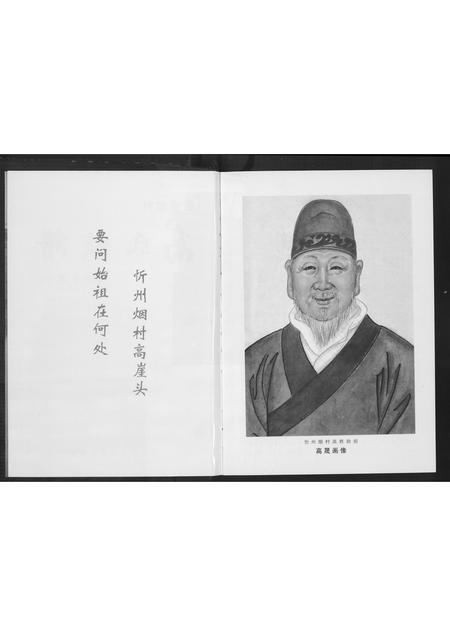 要问始祖在何处
忻州烟村高崖头
忻州烟村高氏始祖
高晟画像